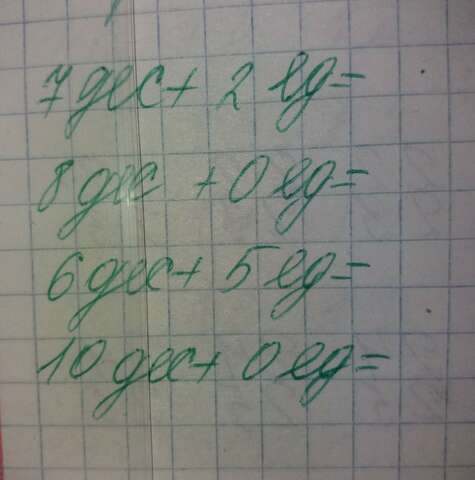 7 дес + 2 ед =
8 дес + 0 ед =
6 дес + 5 ед =
10 дес + 0 ед =